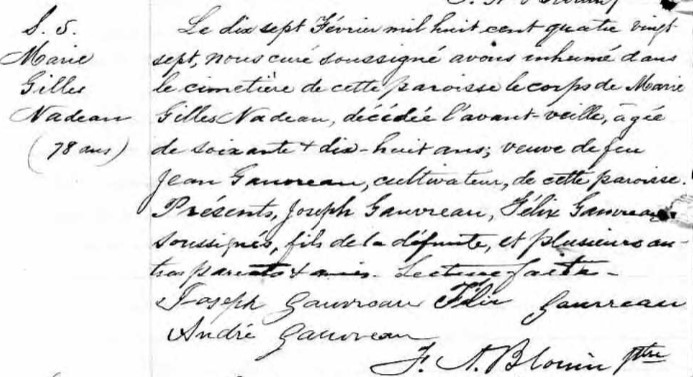 S. 5.
Marie
Gilles
Nadeau
(78 ans)
Le dix sept Février mil huit cent quatre vingt
sept, nous curé soussigné avons inhumé dans
le cimetière de cette paroisse le corps de Marie
Gilles Nadeau, décédée l'avant-veille, âgée
de soixante & dix-huit ans; veuve de feu
Jean Gauvreau, cultivateur, de cette paroisse.
Présents, Joseph Gauvreau, Félix Gauvreau
soussignés, fils de la défunte, et plusieurs au-
tres parents & amis. Lecture faite-
Joseph Gauvreau Félix Gauvreau
André Gauvreau
F. A. Blouin ptre